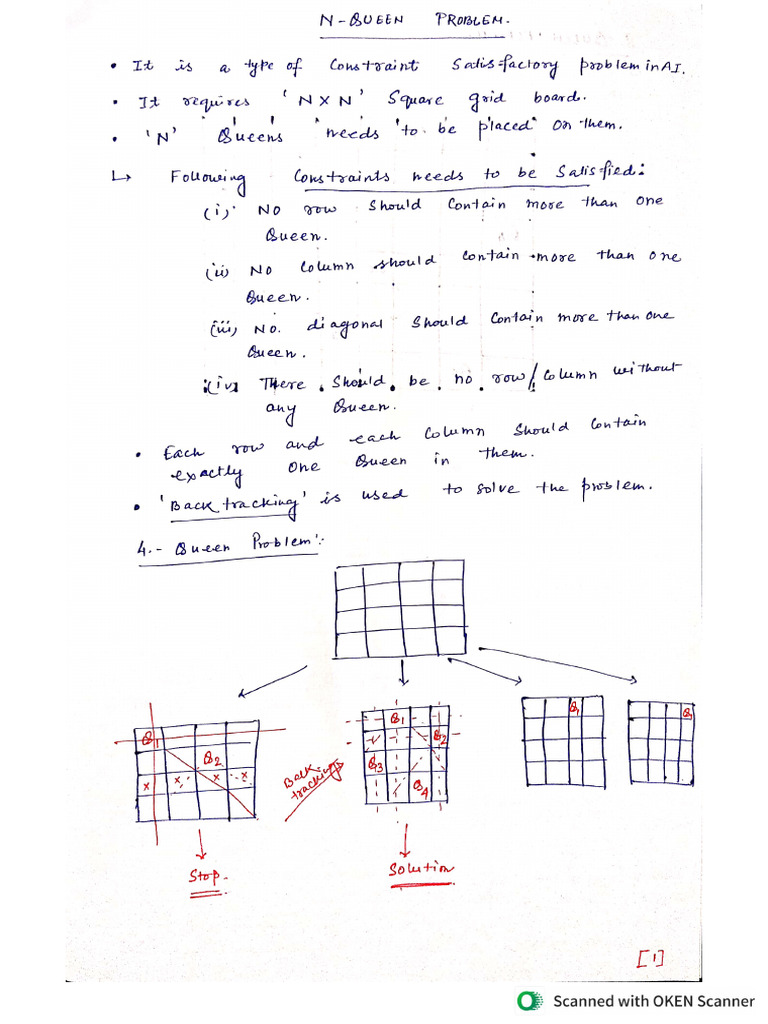 N-QUEEN PROBLEM.
• It is a type of Constraint Satis-factory problem in AI.
• It requires 'N×N' Square grid board.
• 'N' Queens needs to be placed on them.
↳ Following Constraints needs to be Satisfied:
(i) No row should contain more than one
Queen.
(ii) No column should contain more than one
Queen.
(iii) No. diagonal should contain more than one
Queen.
(iv) There should be no row/column without
any Queen.
• Each row and each column should contain
exactly one Queen in them.
• 'Back tracking' is used to solve the problem.
4.- Queen Problem:
Q1
Q2
x x x x
Back
trackings
Q1
Q2
Q3
Q4
Q1
Q
Stop.
Solution
[1]
Scanned with OKEN Scanner